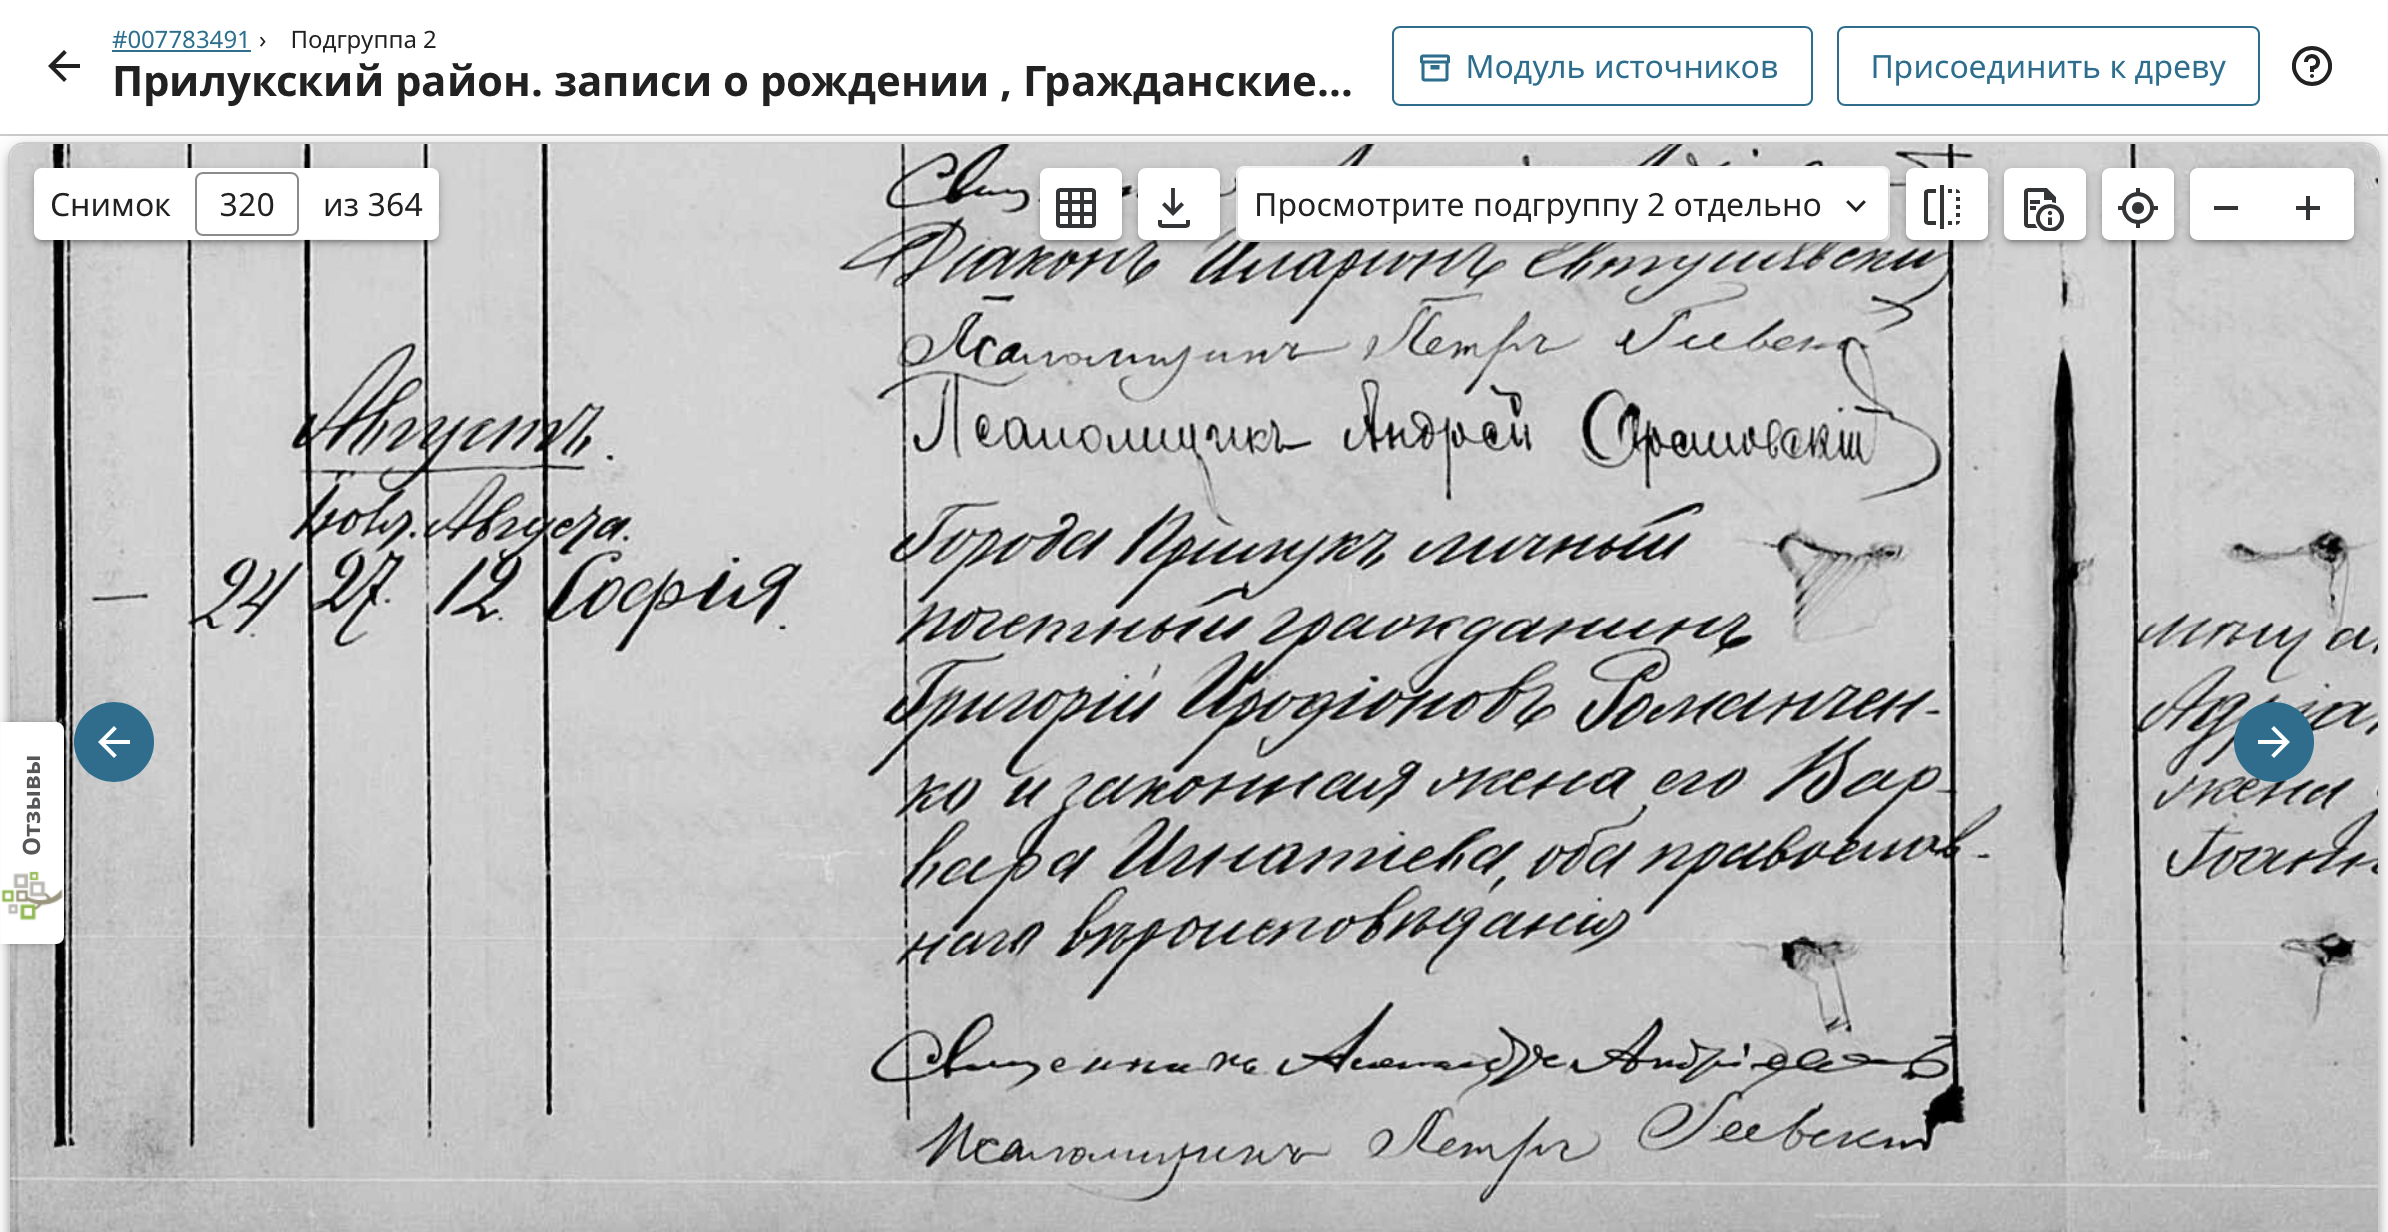 #007783491 › Подгруппа 2
Прилукский район. записи о рождении , Гражданские...
Модуль источников
Присоединить к древу
Снимок 320 из 364
Просмотрите подгруппу 2 отдельно
Діаконъ Иларионъ Евтушевскій
Псаломщикъ Петръ Геевскій
Псаломщикъ Андрей
Августъ.
Іюля. Августа.
— 24. 27. 12. Софія.
Города Прилукъ личный
почетный гражданинъ
Григорій Иродіоновъ Романчен-
ко и законная жена его Вар-
вара Игнатіева, оба православ-
наго вѣроисповѣданія
жена
Отзывы
Священникъ Александръ
Псаломщикъ Петръ Геевскій